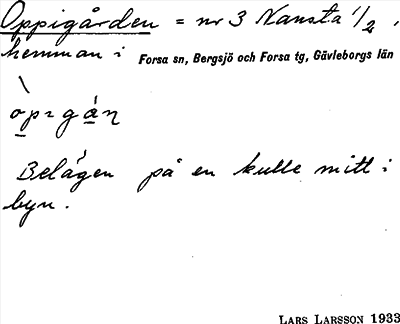 Oppigården = nr 3 Nansta 1/2,
hemman i Forsa sn, Bergsjö och Forsa tg, Gävleborgs län
òp=gán
Belägen på en kulle mitt i
byn.
LARS LARSSON 1933